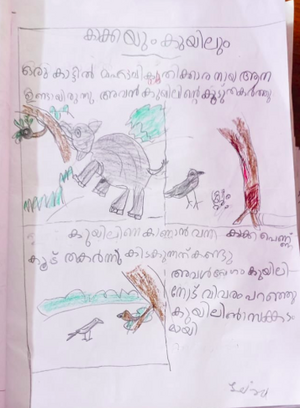 കാക്കയും കുയിലും
ഒരു കാട്ടിൽ മഹാവികൃതിക്കാരനായ ആന
ഉണ്ടായിരുന്നു അവൻ കുയിലിന്റെ കൂടു തകർന്നു
കുയിലിനെ കാണാൻ വന്ന കാക്ക പെണ്ണ്
കൂട് തകർന്നു കിടക്കുന്നത് കണ്ടു
അവൾ കുയിലി-
നോട് വിവരം പറഞ്ഞു
കുയിലിൻ സങ്കടം
മായി